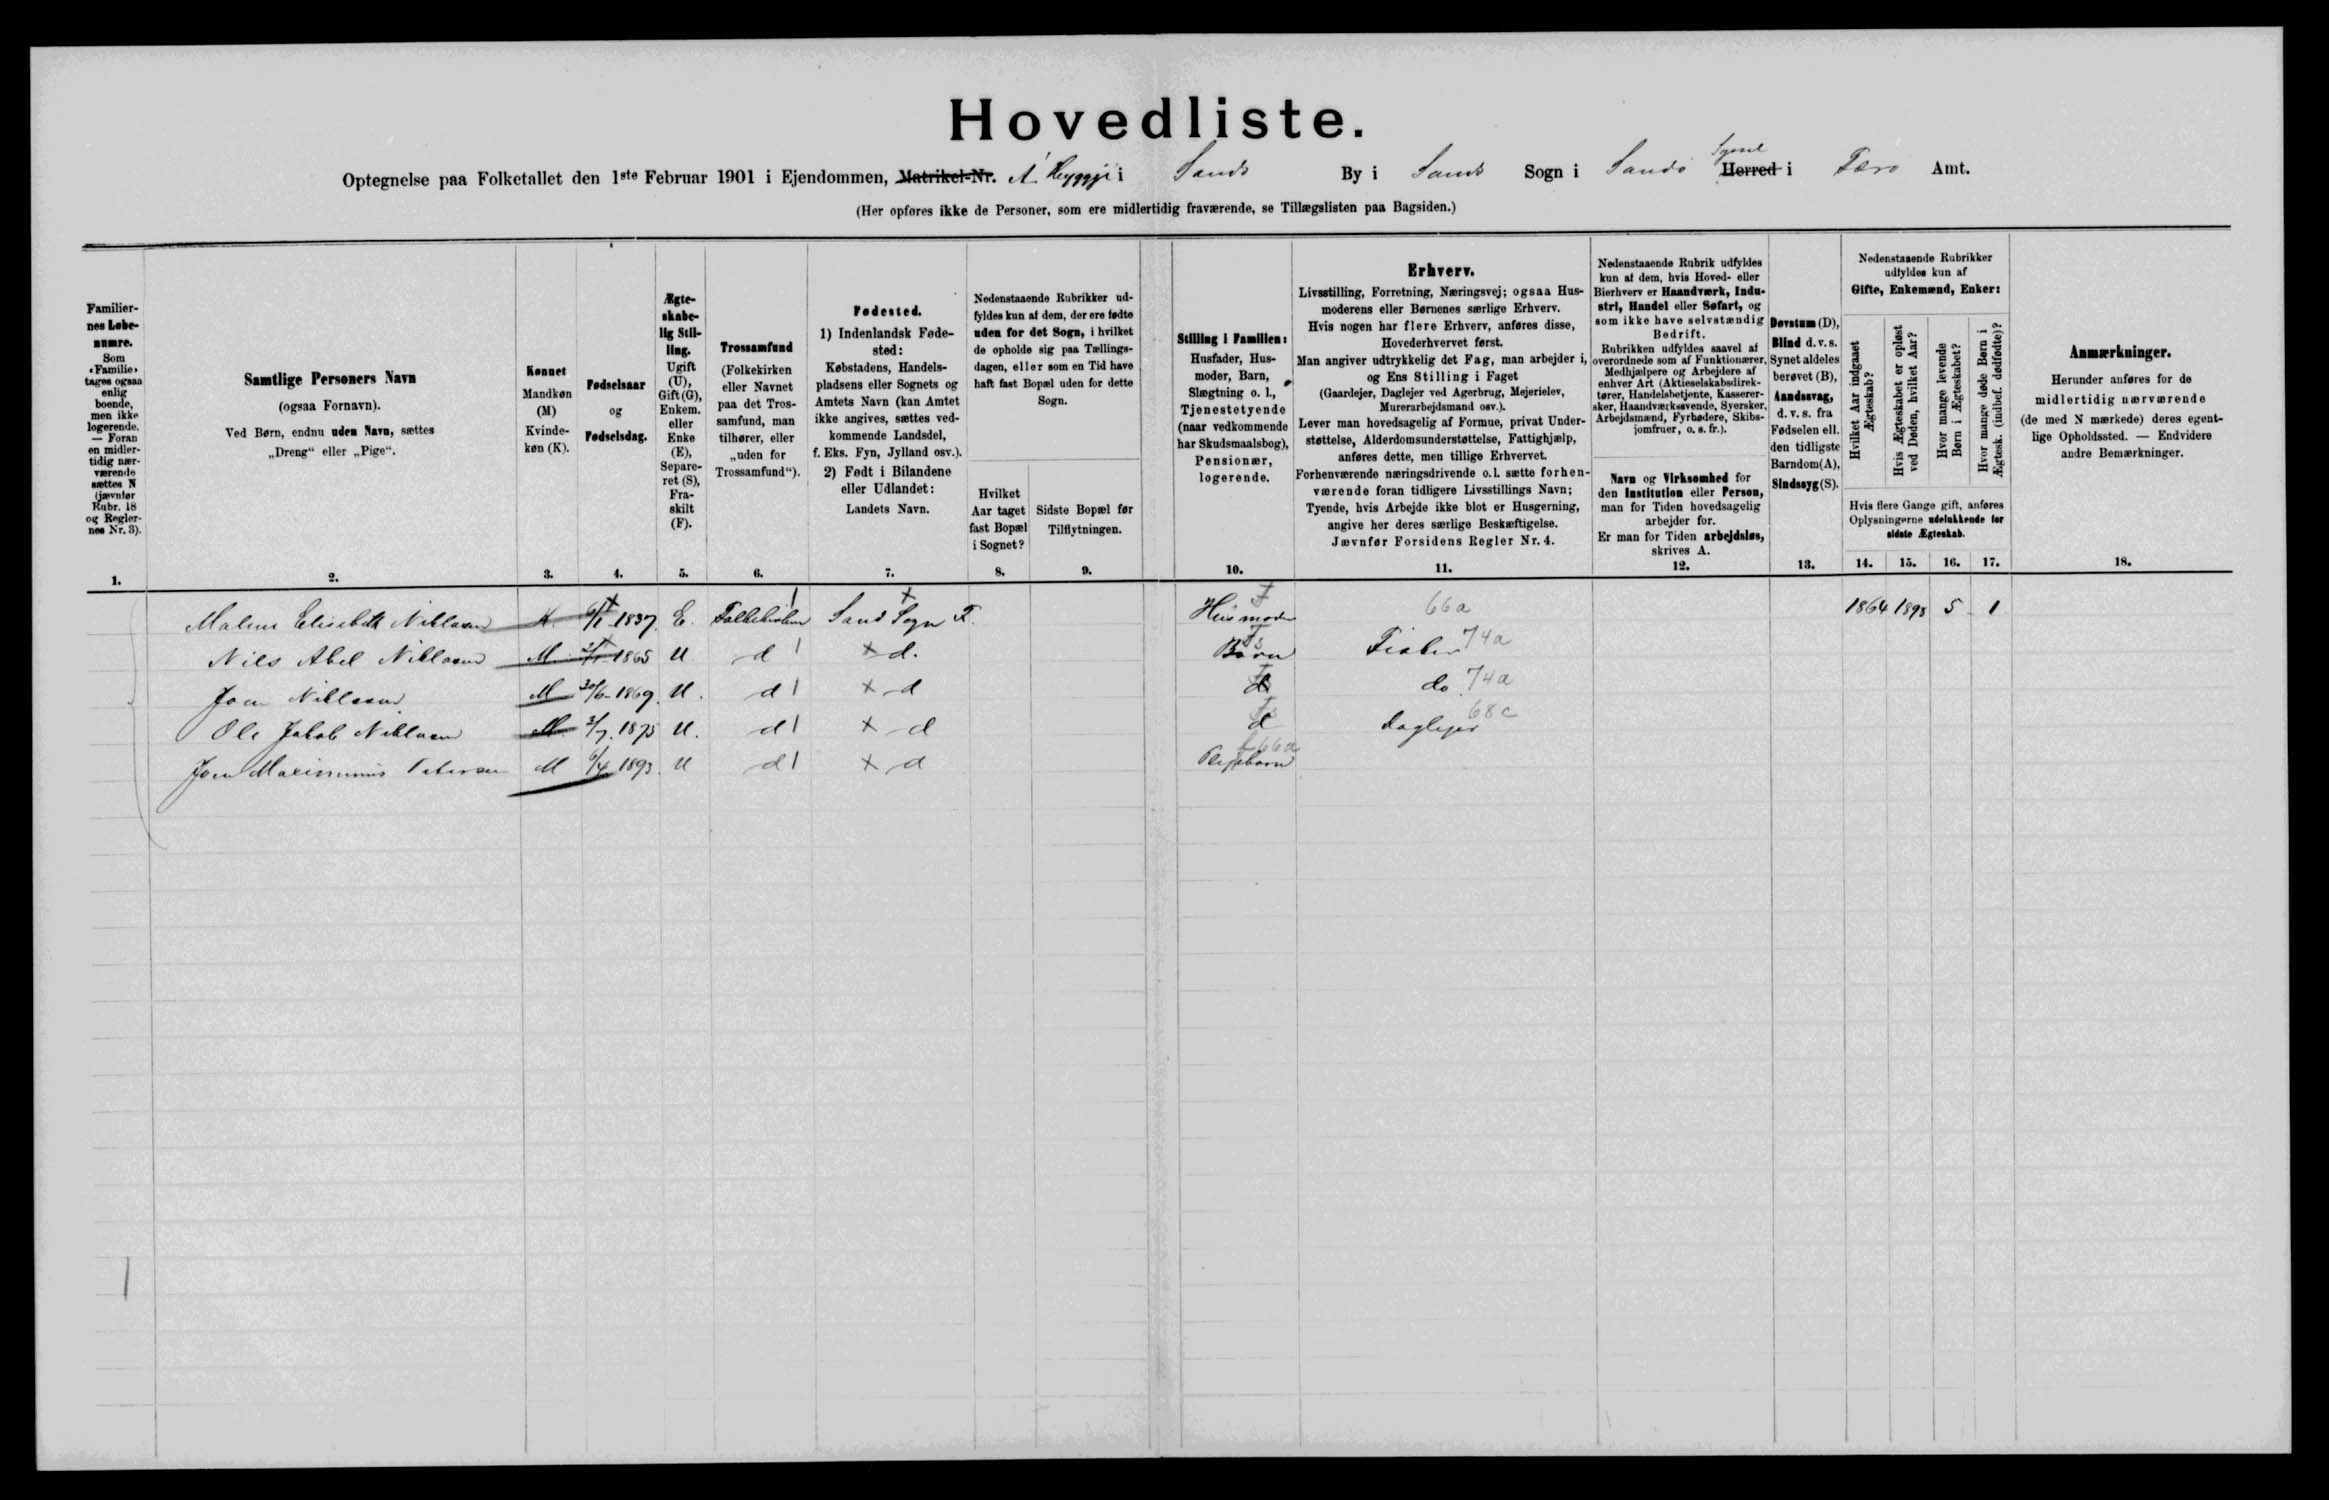 Hovedliste.
Optegnelse paa Folketallet den 1ste Februar 1901 i Ejendommen, Matrikel-Nr. Á Heyggji i Sands By i Sands Sogn i Sandø Syssel Herred i Færø Amt.
(Her opføres ikke de Personer, som ere midlertidig fraværende, se Tillægslisten paa Bagsiden.)
Familier-
nes Løbe-
numre.
Som
«Familie»
tages ogsaa
enlig
boende,
men ikke
logerende.
— Foran
en midler-
tidig nær-
værende
sættes N
(jævnfør
Rubr. 18
og Regler-
nes Nr. 3).
1.
Samtlige Personers Navn
(ogsaa Fornavn).
Ved Børn, endnu uden Navn, sættes
„Dreng“ eller „Pige“.
2.
Kønnet
Mandkøn
(M)
Kvinde-
køn (K).
3.
Fødselsaar
og
Fødselsdag.
4.
Ægte-
skabe-
lig Stil-
ling.
Ugift
(U),
Gift (G),
Enkem.
eller
Enke
(E),
Separe-
ret (S),
Fra-
skilt
(F).
5.
Trossamfund
(Folkekirken
eller Navnet
paa det Tros-
samfund, man
tilhører, eller
„uden for
Trossamfund“).
6.
Fødested.
1) Indenlandsk Føde-
sted:
Købstadens, Handels-
pladsens eller Sognets og
Amtets Navn (kan Amtet
ikke angives, sættes ved-
kommende Landsdel,
f. Eks. Fyn, Jylland osv.).
2) Født i Bilandene
eller Udlandet:
Landets Navn.
7.
Nedenstaaende Rubrikker ud-
fyldes kun af dem, der ere fødte
uden for det Sogn, i hvilket
de opholde sig paa Tællings-
dagen, eller som en Tid have
haft fast Bopæl uden for dette
Sogn.
Hvilket
Aar taget
fast Bopæl
i Sognet?
8.
Sidste Bopæl før
Tilflytningen.
9.
Stilling i Familien:
Husfader, Hus-
moder, Barn,
Slægtning o. l.,
Tjenestetyende
(naar vedkommende
har Skudsmaalsbog),
Pensionær,
logerende.
10.
Erhverv.
Livsstilling, Forretning, Næringsvej; ogsaa Hus-
moderens eller Børnenes særlige Erhverv.
Hvis nogen har flere Erhverv, anføres disse,
Hovederhvervet først.
Man angiver udtrykkelig det Fag, man arbejder i,
og Ens Stilling i Faget
(Gaardejer, Daglejer ved Agerbrug, Mejerielev,
Murerarbejdsmand osv.).
Lever man hovedsagelig af Formue, privat Under-
støttelse, Alderdomsunderstøttelse, Fattighjælp,
anføres dette, men tillige Erhvervet.
Forhenværende næringsdrivende o. l. sætte forhen-
værende foran tidligere Livsstillings Navn;
Tyende, hvis Arbejde ikke blot er Husgerning,
angive her deres særlige Beskæftigelse.
Jævnfør Forsidens Regler Nr. 4.
11.
Nedenstaaende Rubrik udfyldes
kun af dem, hvis Hoved- eller
Bierhverv er Haandværk, Indu-
stri, Handel eller Søfart, og
som ikke have selvstændig
Bedrift.
Rubrikken udfyldes saavel af
overordnede som af Funktionærer,
Medhjælpere og Arbejdere af
enhver Art (Aktieselskabsdirek-
tører, Handelsbetjente, Kasserer-
sker, Haandværkssvende, Syersker,
Arbejdsmænd, Fyrbødere, Skibs-
jomfruer, o. s. fr.).
Navn og Virksomhed for
den Institution eller Person,
man for Tiden hovedsagelig
arbejder for.
Er man for Tiden arbejdsløs,
skrives A.
12.
Døvstum (D),
Blind d. v. s.
Synet aldeles
berøvet (B),
Aandssvag,
d. v. s. fra
Fødselen ell.
den tidligste
Barndom (A),
Sindssyg (S).
13.
Nedenstaaende Rubrikker
udfyldes kun af
Gifte, Enkemænd, Enker:
Hvilket Aar indgaaet
Ægteskab?
Hvis Ægteskabet er opløst
ved Døden, hvilket Aar?
Hvor mange levende
Børn i Ægteskabet?
Hvor mange døde Børn i
Ægtesk. (indbef. dødfødte)?
Hvis flere Gange gift, anføres
Oplysningerne udelukkende for
sidste Ægteskab.
14. 15. 16. 17.
Anmærkninger.
Herunder anføres for de
midlertidig nærværende
(de med N mærkede) deres egent-
lige Opholdssted. — Endvidere
andre Bemærkninger.
18.
Malene Elisabeth Niklasen K. 1837. E. Folkekirken Sand Sogn F. Husmoder 66a 1864 1898 5 1
Nils Abel Niklasen M. 1865 U d d. Børn Fisker 74a
Joen Niklasen M 30/6 1869. U. d d d do 74a
Ole Jakob Niklasen M. 3/7. 1875 U. d d d Daglejer 68c
Joen Maximinus Petersen M 6/4 1893. U d d Plejebarn 66a